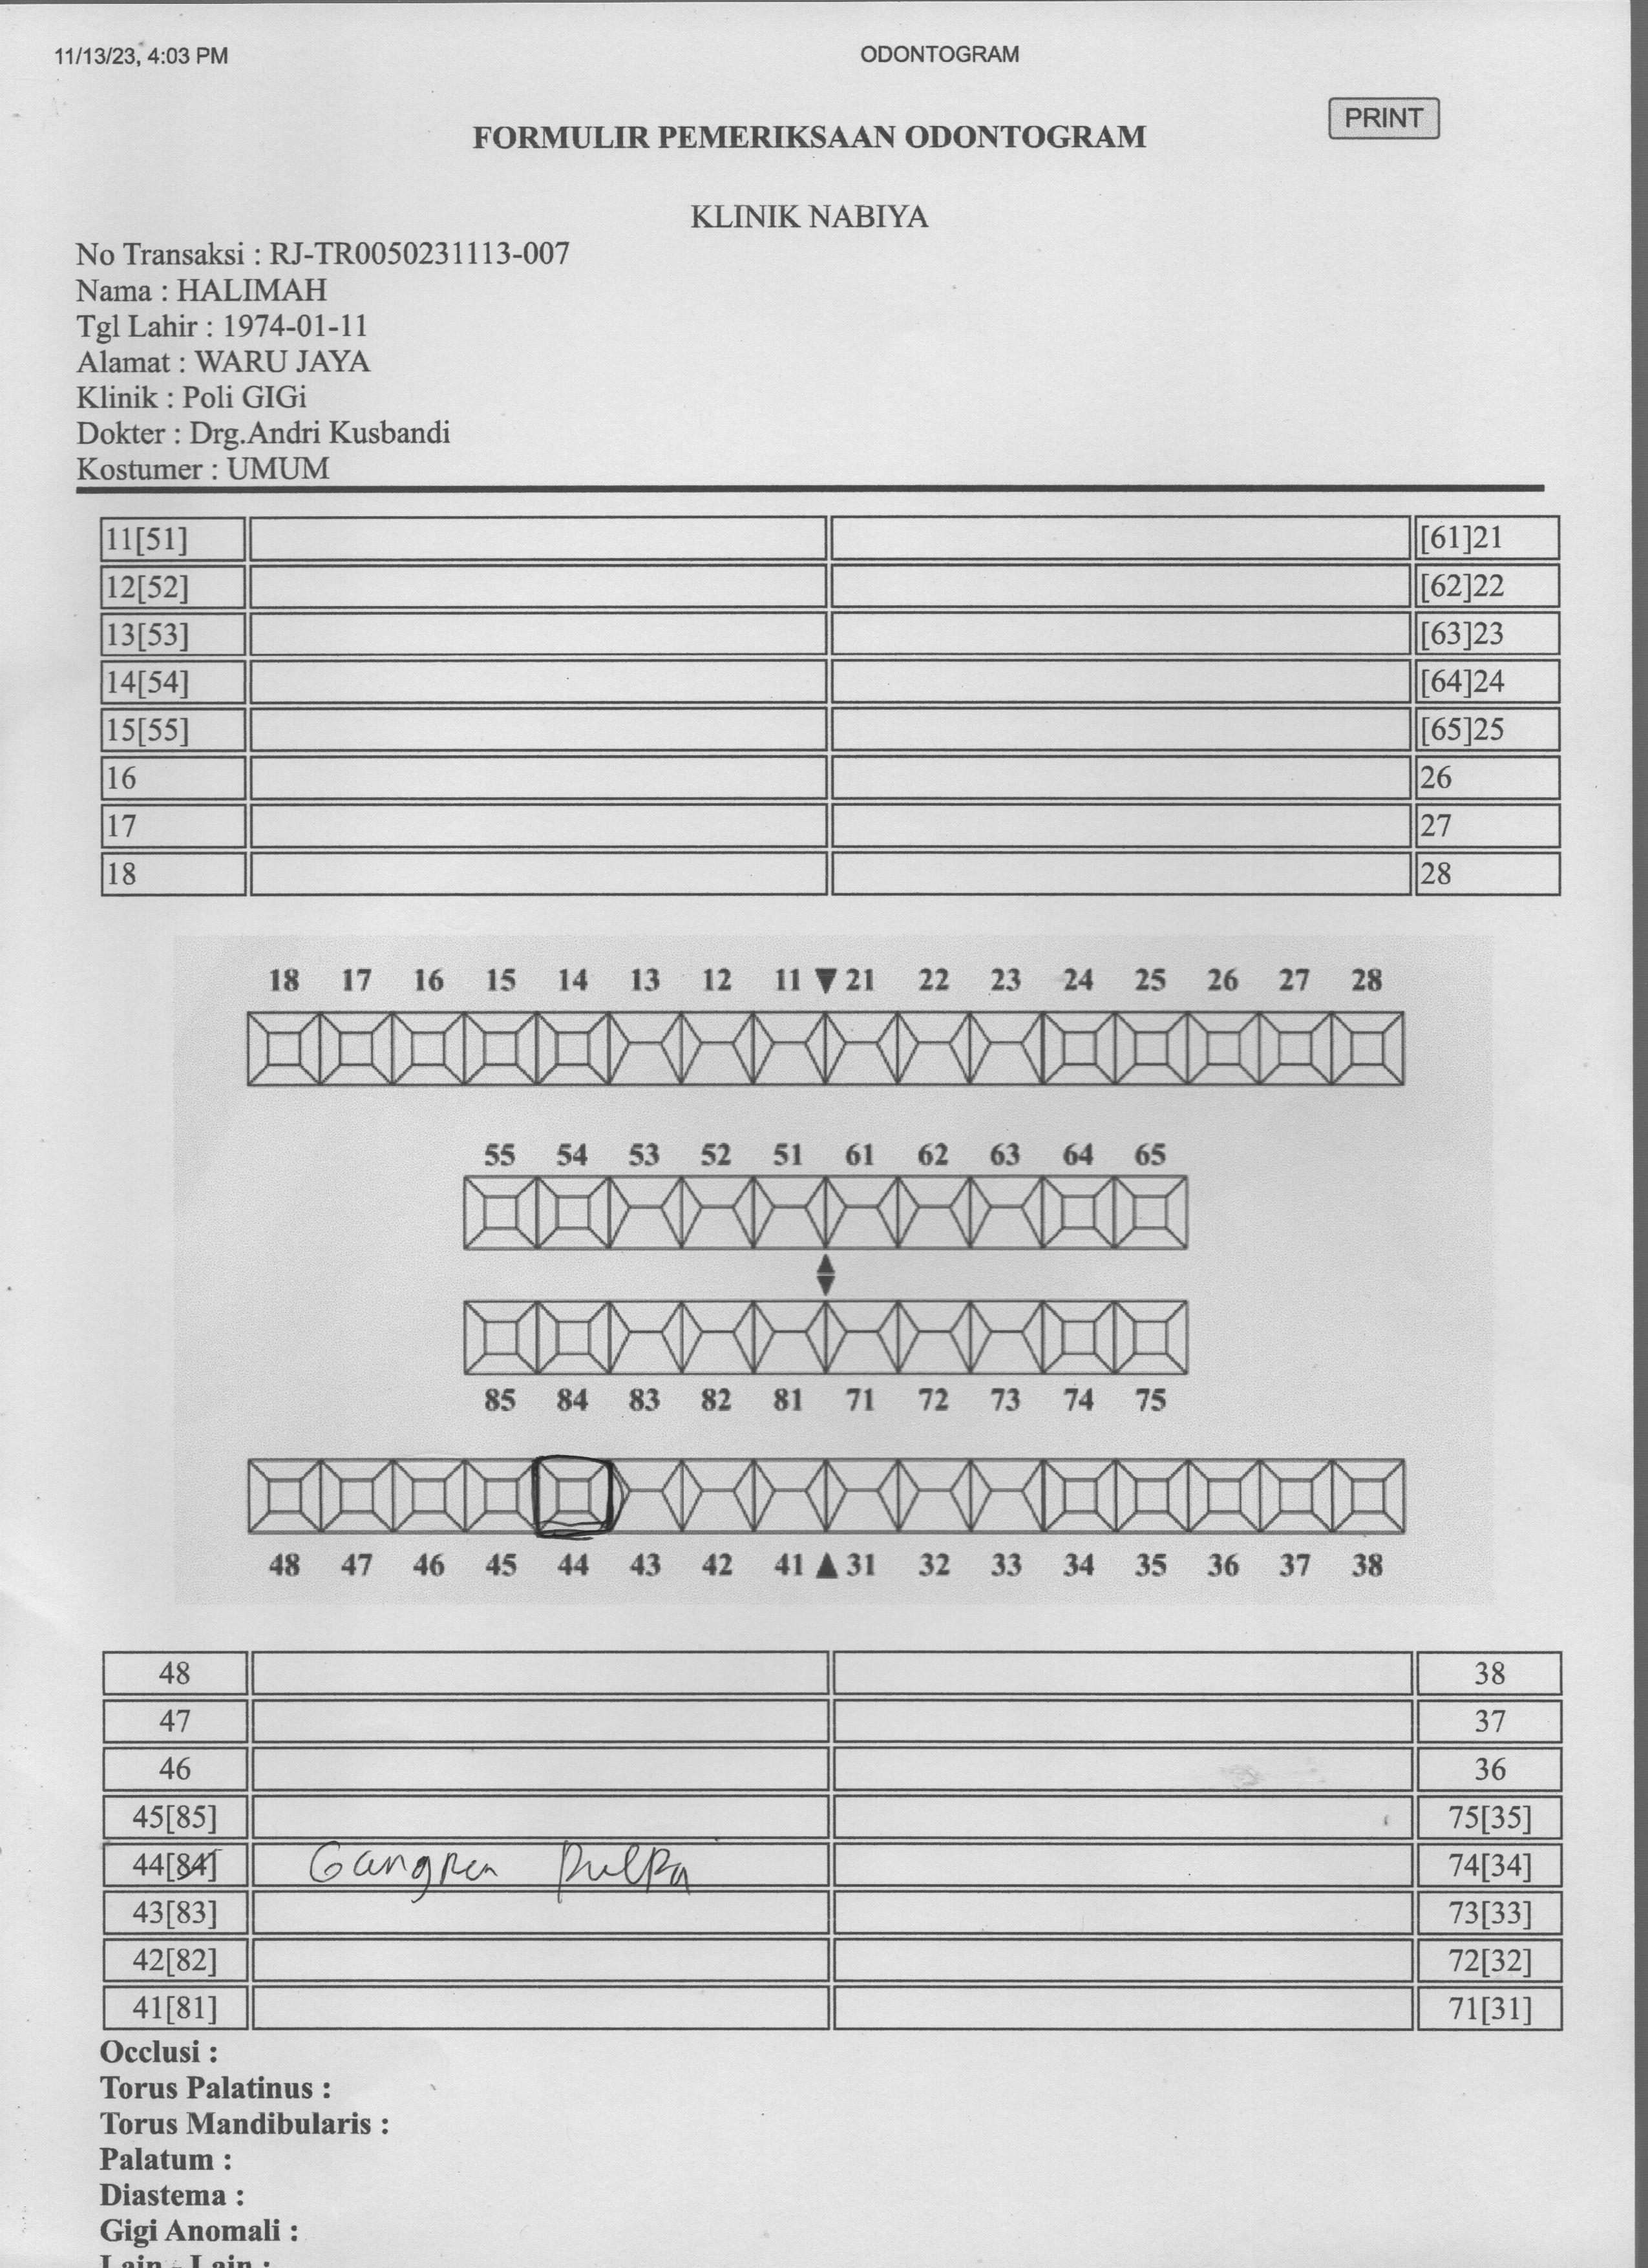 11/13/23, 4:03 PM ODONTOGRAM
PRINT
FORMULIR PEMERIKSAAN ODONTOGRAM
KLINIK NABIYA
No Transaksi : RJ-TR0050231113-007
Nama : HALIMAH
Tgl Lahir : 1974-01-11
Alamat : WARU JAYA
Klinik : Poli GIGi
Dokter : Drg.Andri Kusbandi
Kostumer : UMUM
11[51] [61]21
12[52] [62]22
13[53] [63]23
14[54] [64]24
15[55] [65]25
16 26
17 27
18 28
18 17 16 15 14 13 12 11 ▼ 21 22 23 24 25 26 27 28
55 54 53 52 51 61 62 63 64 65
85 84 83 82 81 71 72 73 74 75
48 47 46 45 44 43 42 41 ▲ 31 32 33 34 35 36 37 38
48 38
47 37
46 36
45[85] 75[35]
44[84] Gangren pulpa 74[34]
43[83] 73[33]
42[82] 72[32]
41[81] 71[31]
Occlusi :
Torus Palatinus :
Torus Mandibularis :
Palatum :
Diastema :
Gigi Anomali :
Lain - Lain :